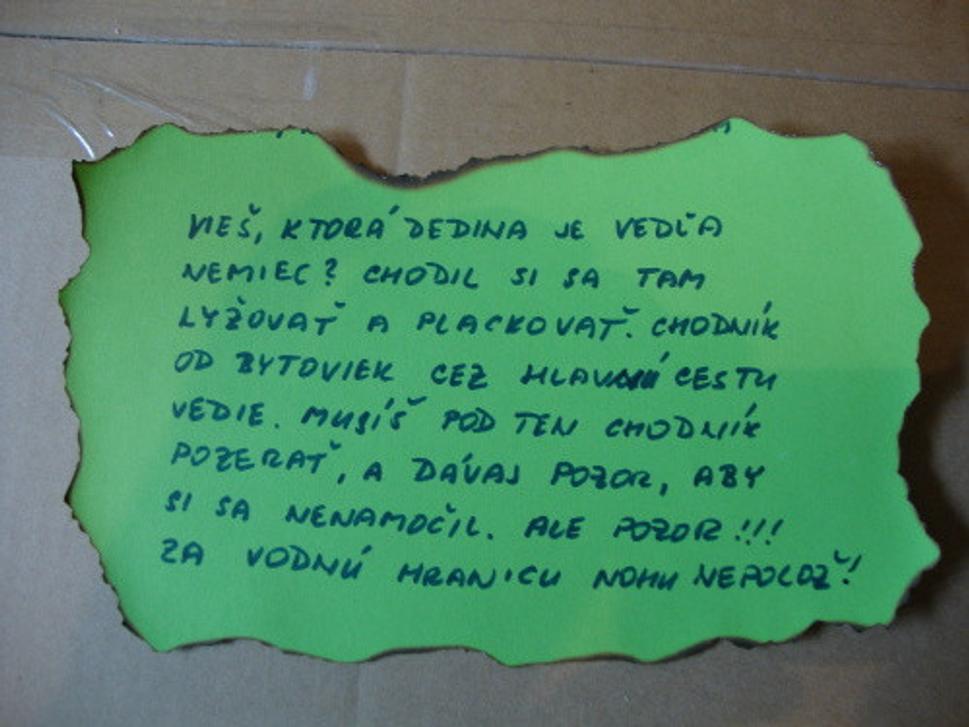 VIEŠ, KTORÁ DEDINA JE VEDĽA
NEMIEC? CHODIL SI SA TAM
LYŽOVAŤ A PLACKOVAŤ. CHODNÍK
OD BYTOVIEK CEZ HLAVNÚ CESTU
VEDIE. MUSÍŠ POD TEN CHODNÍK
POZERAŤ, A DÁVAJ POZOR, ABY
SI SA NENAMOČIL. ALE POZOR!!!
ZA VODNÚ HRANICU NOHU NEPOLOŽ!